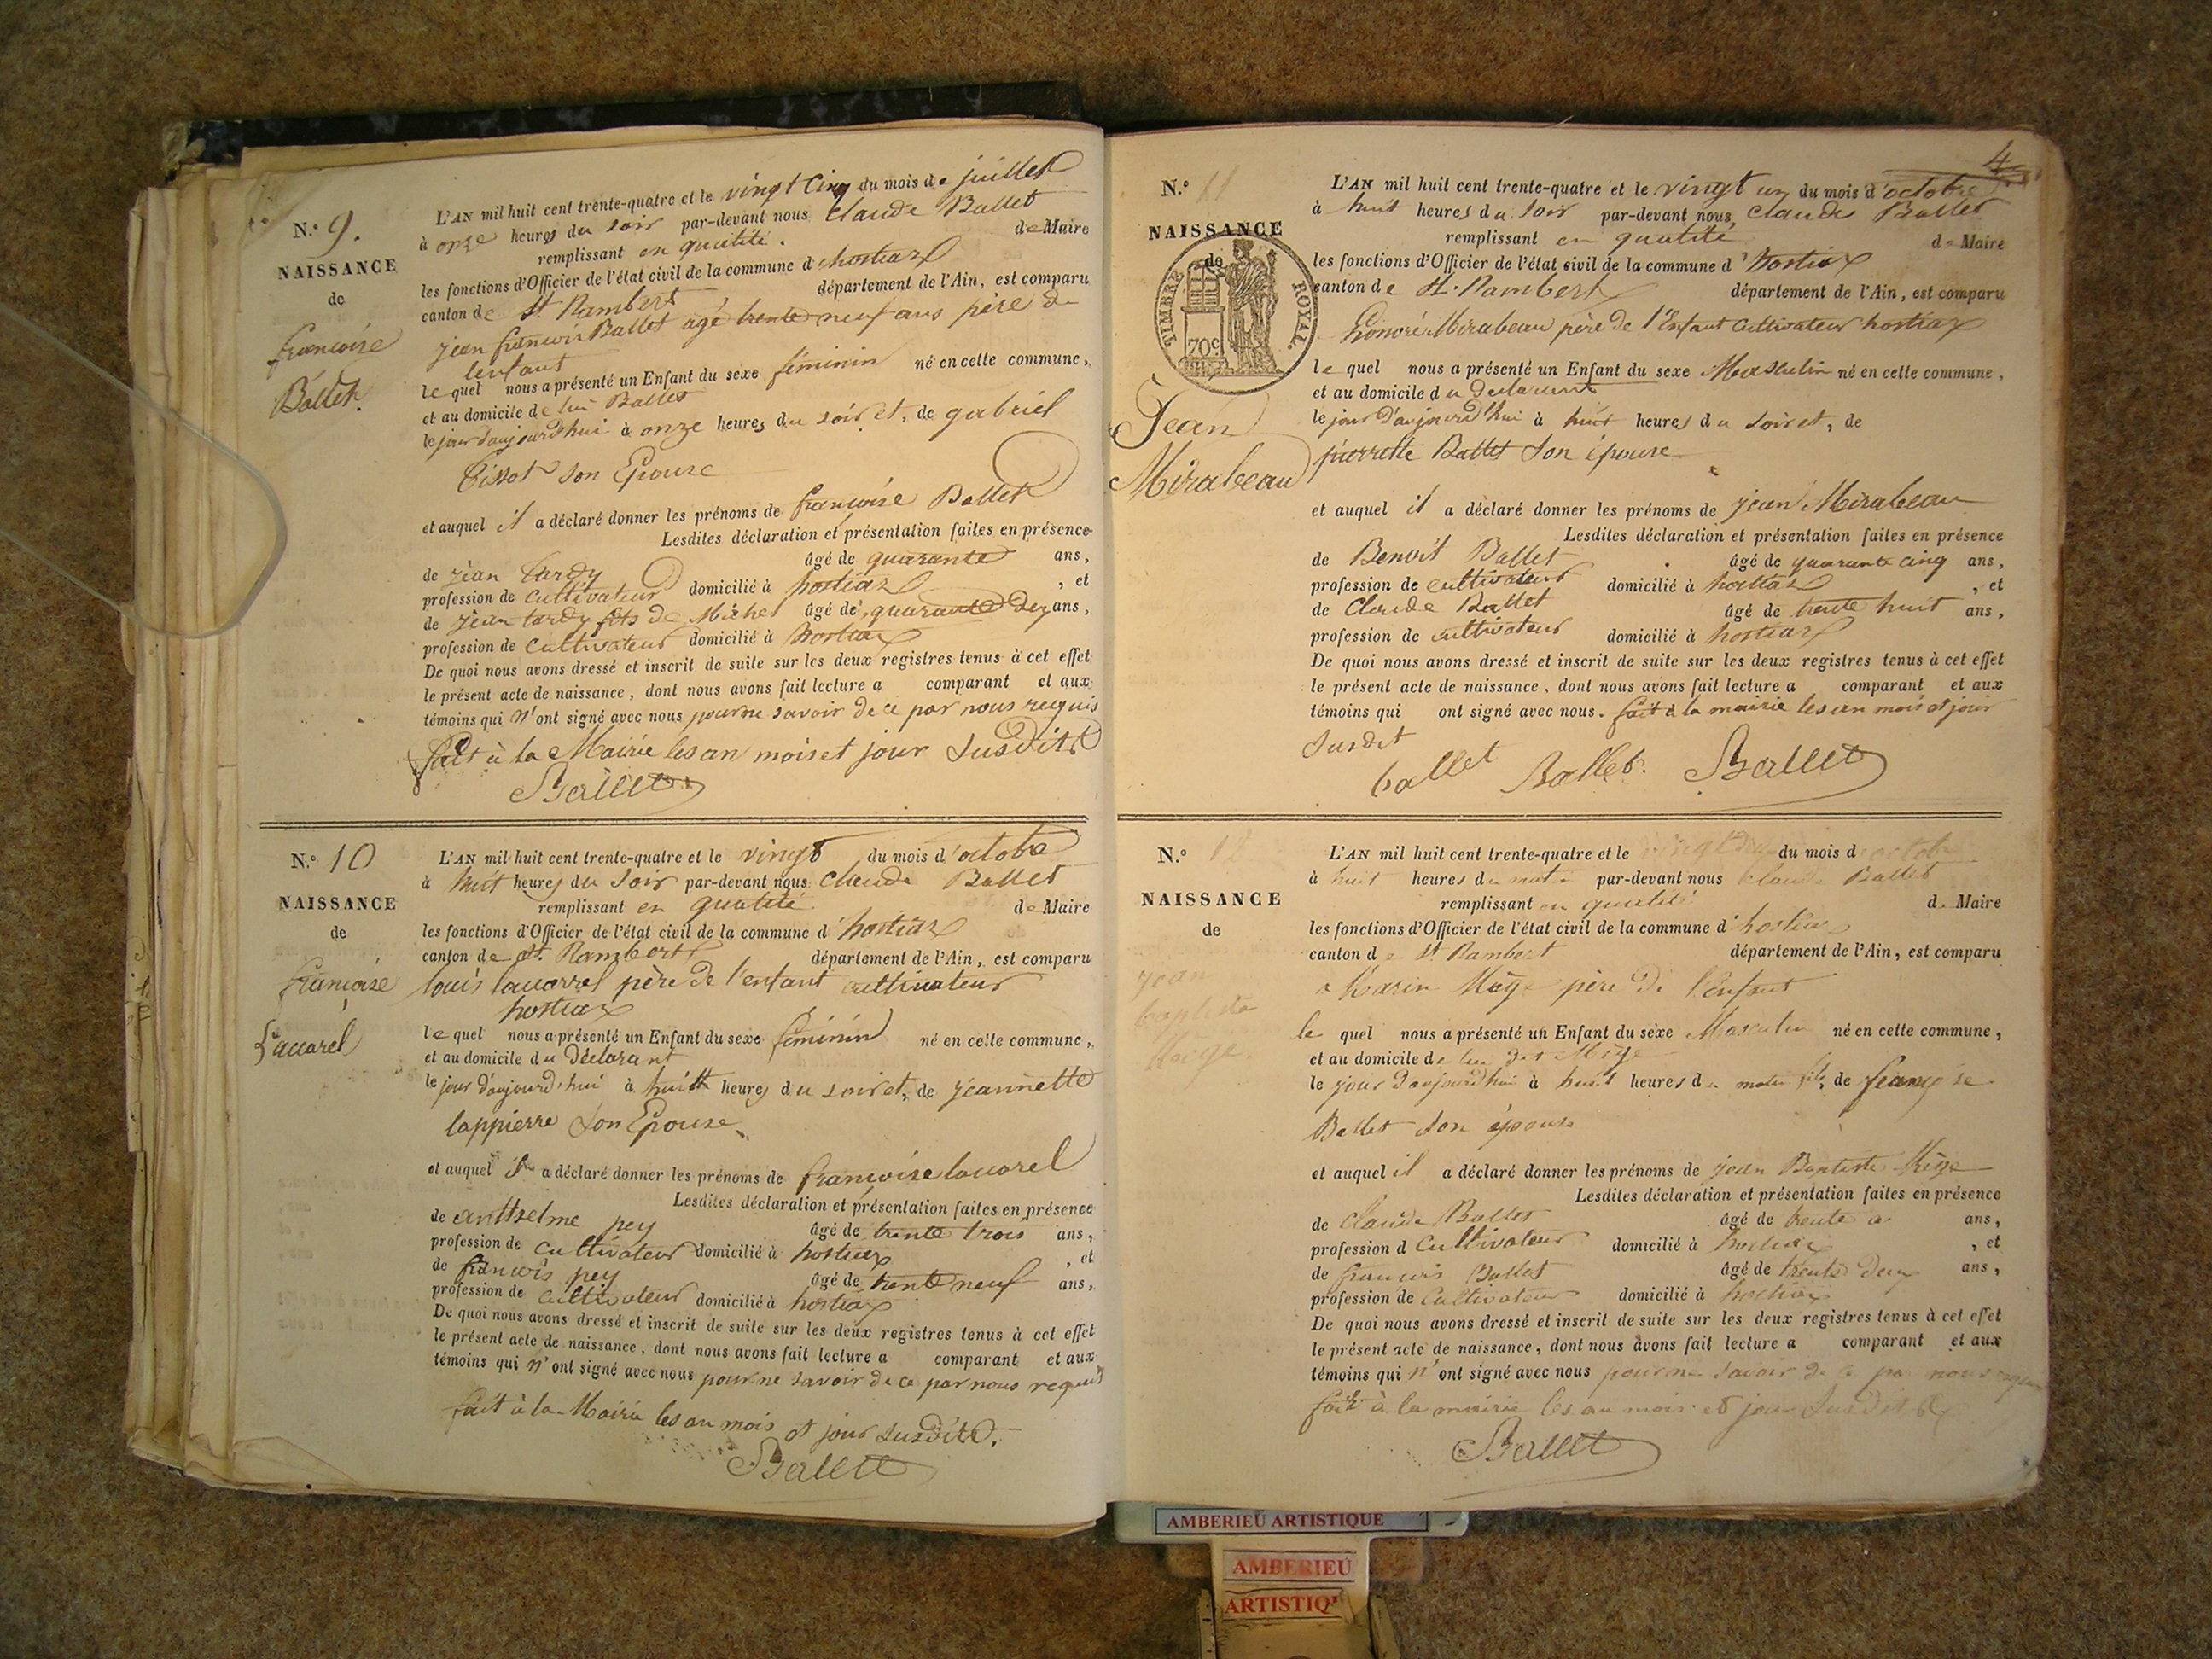 N.° 9.
NAISSANCE
de
françoise
Ballet.
L'AN mil huit cent trente-quatre et le vingt cinq du mois de juillet
à onze heures du soir par-devant nous Claude Ballet
remplissant en qualité de Maire
les fonctions d'Officier de l'état civil de la commune d'hostiaz
canton de St. Rambert département de l'Ain, est comparu
jean françois Ballet agé trente neuf ans père de
lenfant
le quel nous a présenté un Enfant du sexe féminin né en cette commune,
et au domicile de lui Ballet
le jour daujourdhui à onze heures du soir et, de gabriel
Tissot son Epouse
et auquel il a déclaré donner les prénoms de françoise Ballet
Lesdites déclaration et présentation faites en présence
de jean tardy âgé de quarante ans,
profession de cultivateur domicilié à hostiaz , et
de jean tardy fils de Michel âgé de quarante deux ans,
profession de cultivateur domicilié à hostiaz
De quoi nous avons dressé et inscrit de suite sur les deux registres tenus à cet effet
le présent acte de naissance, dont nous avons fait lecture a comparant et aux
témoins qui n'ont signé avec nous pour ne savoir de ce par nous requis
fait à la Mairie les an mois et jour susdits
Ballet
N.° 10
NAISSANCE
de
françoise
Laccorel
L'AN mil huit cent trente-quatre et le vingt du mois d'octobre
à huit heures du soir par-devant nous Claude Ballet
remplissant en qualité de Maire
les fonctions d'Officier de l'état civil de la commune d'hostiaz
canton de St. Rambert département de l'Ain, est comparu
louis laccorrel père de l'enfant cultivateur
hostiaz
le quel nous a présenté un Enfant du sexe féminin né en cette commune,
et au domicile du déclarant
le jour d'aujourd'hui à huit heures du soir et, de jeannette
lappierre son Epouse
et auquel il a déclaré donner les prénoms de françoise laccorel
Lesdites déclaration et présentation faites en présence
de antthelme pey âgé de trente trois ans,
profession de cultivateur domicilié à hostiaz , et
de françois pey âgé de trente neuf ans,
profession de cultivateur domicilié à hostiaz
De quoi nous avons dressé et inscrit de suite sur les deux registres tenus à cet effet
le présent acte de naissance, dont nous avons fait lecture a comparant et aux
témoins qui n'ont signé avec nous pour ne savoir de ce par nous requis
fait à la Mairie les an mois et jour susdits.
Ballet
4
N.° 11
NAISSANCE
de
TIMBRE ROYAL
70c
Jean
Mirabeau
L'AN mil huit cent trente-quatre et le vingt un du mois d'octobre
à huit heures du soir par-devant nous Claude Ballet
remplissant en qualité de Maire
les fonctions d'Officier de l'état civil de la commune d'hostiaz
canton de St. Rambert département de l'Ain, est comparu
honoré Mirabeau père de l'Enfant cultivateur hostiaz
le quel nous a présenté un Enfant du sexe Masculin né en cette commune,
et au domicile du déclarant
le jour d'aujourd'hui à huit heures du soir et, de
pierrette Ballet son épouse
et auquel il a déclaré donner les prénoms de jean Mirabeau
Lesdites déclaration et présentation faites en présence
de Benoit Ballet âgé de quarante cinq ans,
profession de cultivateur domicilié à hostiaz , et
de Claude Ballet âgé de trente huit ans,
profession de cultivateur domicilié à hostiaz
De quoi nous avons dressé et inscrit de suite sur les deux registres tenus à cet effet
le présent acte de naissance, dont nous avons fait lecture a comparant et aux
témoins qui ont signé avec nous. fait à la mairie les an mois et jour
susdit
ballet Ballet. Ballet
N.°
NAISSANCE
de
jean
baptiste
Mège
L'AN mil huit cent trente-quatre et le du mois d octobre
à huit heures du matin par-devant nous Claude Ballet
remplissant en qualité de Maire
les fonctions d'Officier de l'état civil de la commune d'hostiaz
canton de St Rambert département de l'Ain, est comparu
Marin Mège père de l'enfant
le quel nous a présenté un Enfant du sexe Masculin né en cette commune,
et au domicile de lui dit Mège
le jour d'aujourdhui à huit heures du matin de françoise
Ballet son épouse
et auquel il a déclaré donner les prénoms de jean Baptiste Mège
Lesdites déclaration et présentation faites en présence
de Claude Ballet âgé de trente ans,
profession d cultivateur domicilié à hostiaz , et
de françois Ballet âgé de trente deux ans,
profession de cultivateur domicilié à hostiaz
De quoi nous avons dressé et inscrit de suite sur les deux registres tenus à cet effet
le présent acte de naissance, dont nous avons fait lecture a comparant et aux
témoins qui n'ont signé avec nous pour ne savoir de ce par nous
fait à la mairie les an mois et jour susdits
Ballet
AMBERIEU ARTISTIQUE
AMBERIEU
ARTISTIQ